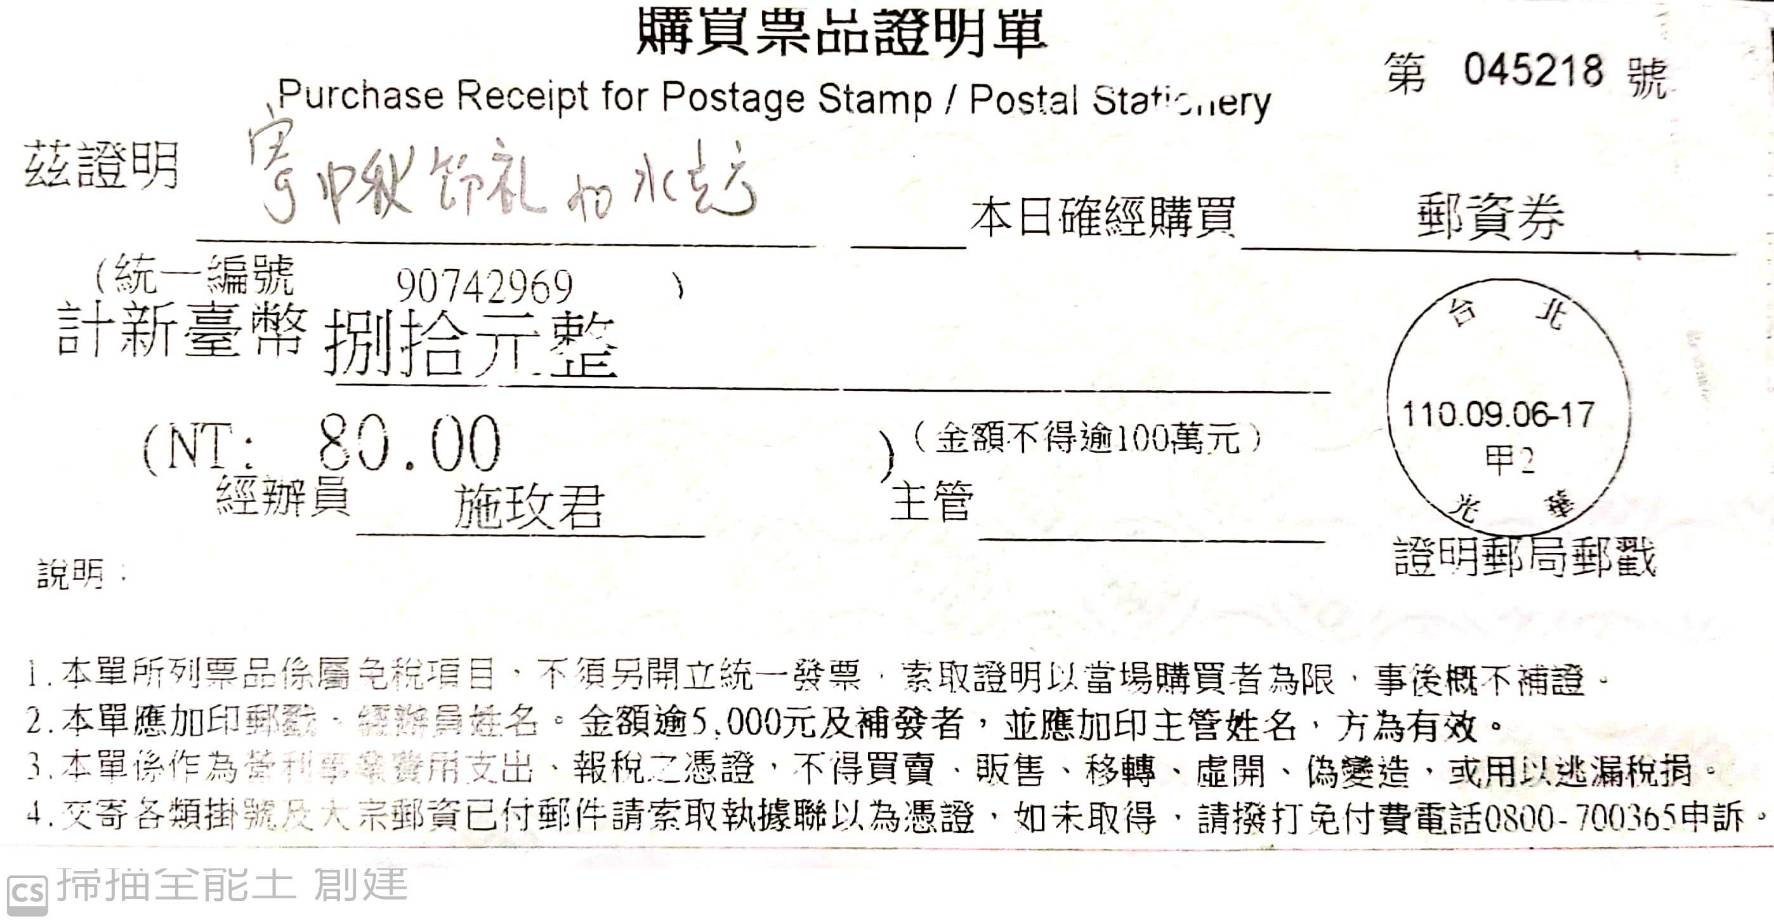 購買票品證明單
Purchase Receipt for Postage Stamp / Postal Stationery
第 045218 號
茲證明 寄中秋節礼 水
本日確經購買 郵資券
(統一編號 90742969 )
計新臺幣 捌拾元整
(NT: 80.00 ) (金額不得逾100萬元)
經辦員 施玫君 主管
台北
110.09.06-17
甲2
光華
證明郵局郵戳
說明:
1.本單所列票品係屬免稅項目、不須另開立統一發票,索取證明以當場購買者為限,事後概不補證。
2.本單應加印郵戳、經辦員姓名。金額逾5,000元及補發者,並應加印主管姓名,方為有效。
3.本單係作為營利事業費用支出、報稅之憑證,不得買賣、販售、移轉、虛開、偽變造,或用以逃漏稅捐。
4.交寄各類掛號及大宗郵資已付郵件請索取執據聯以為憑證,如未取得,請撥打免付費電話0800-700365申訴。
CS 掃描全能王 創建